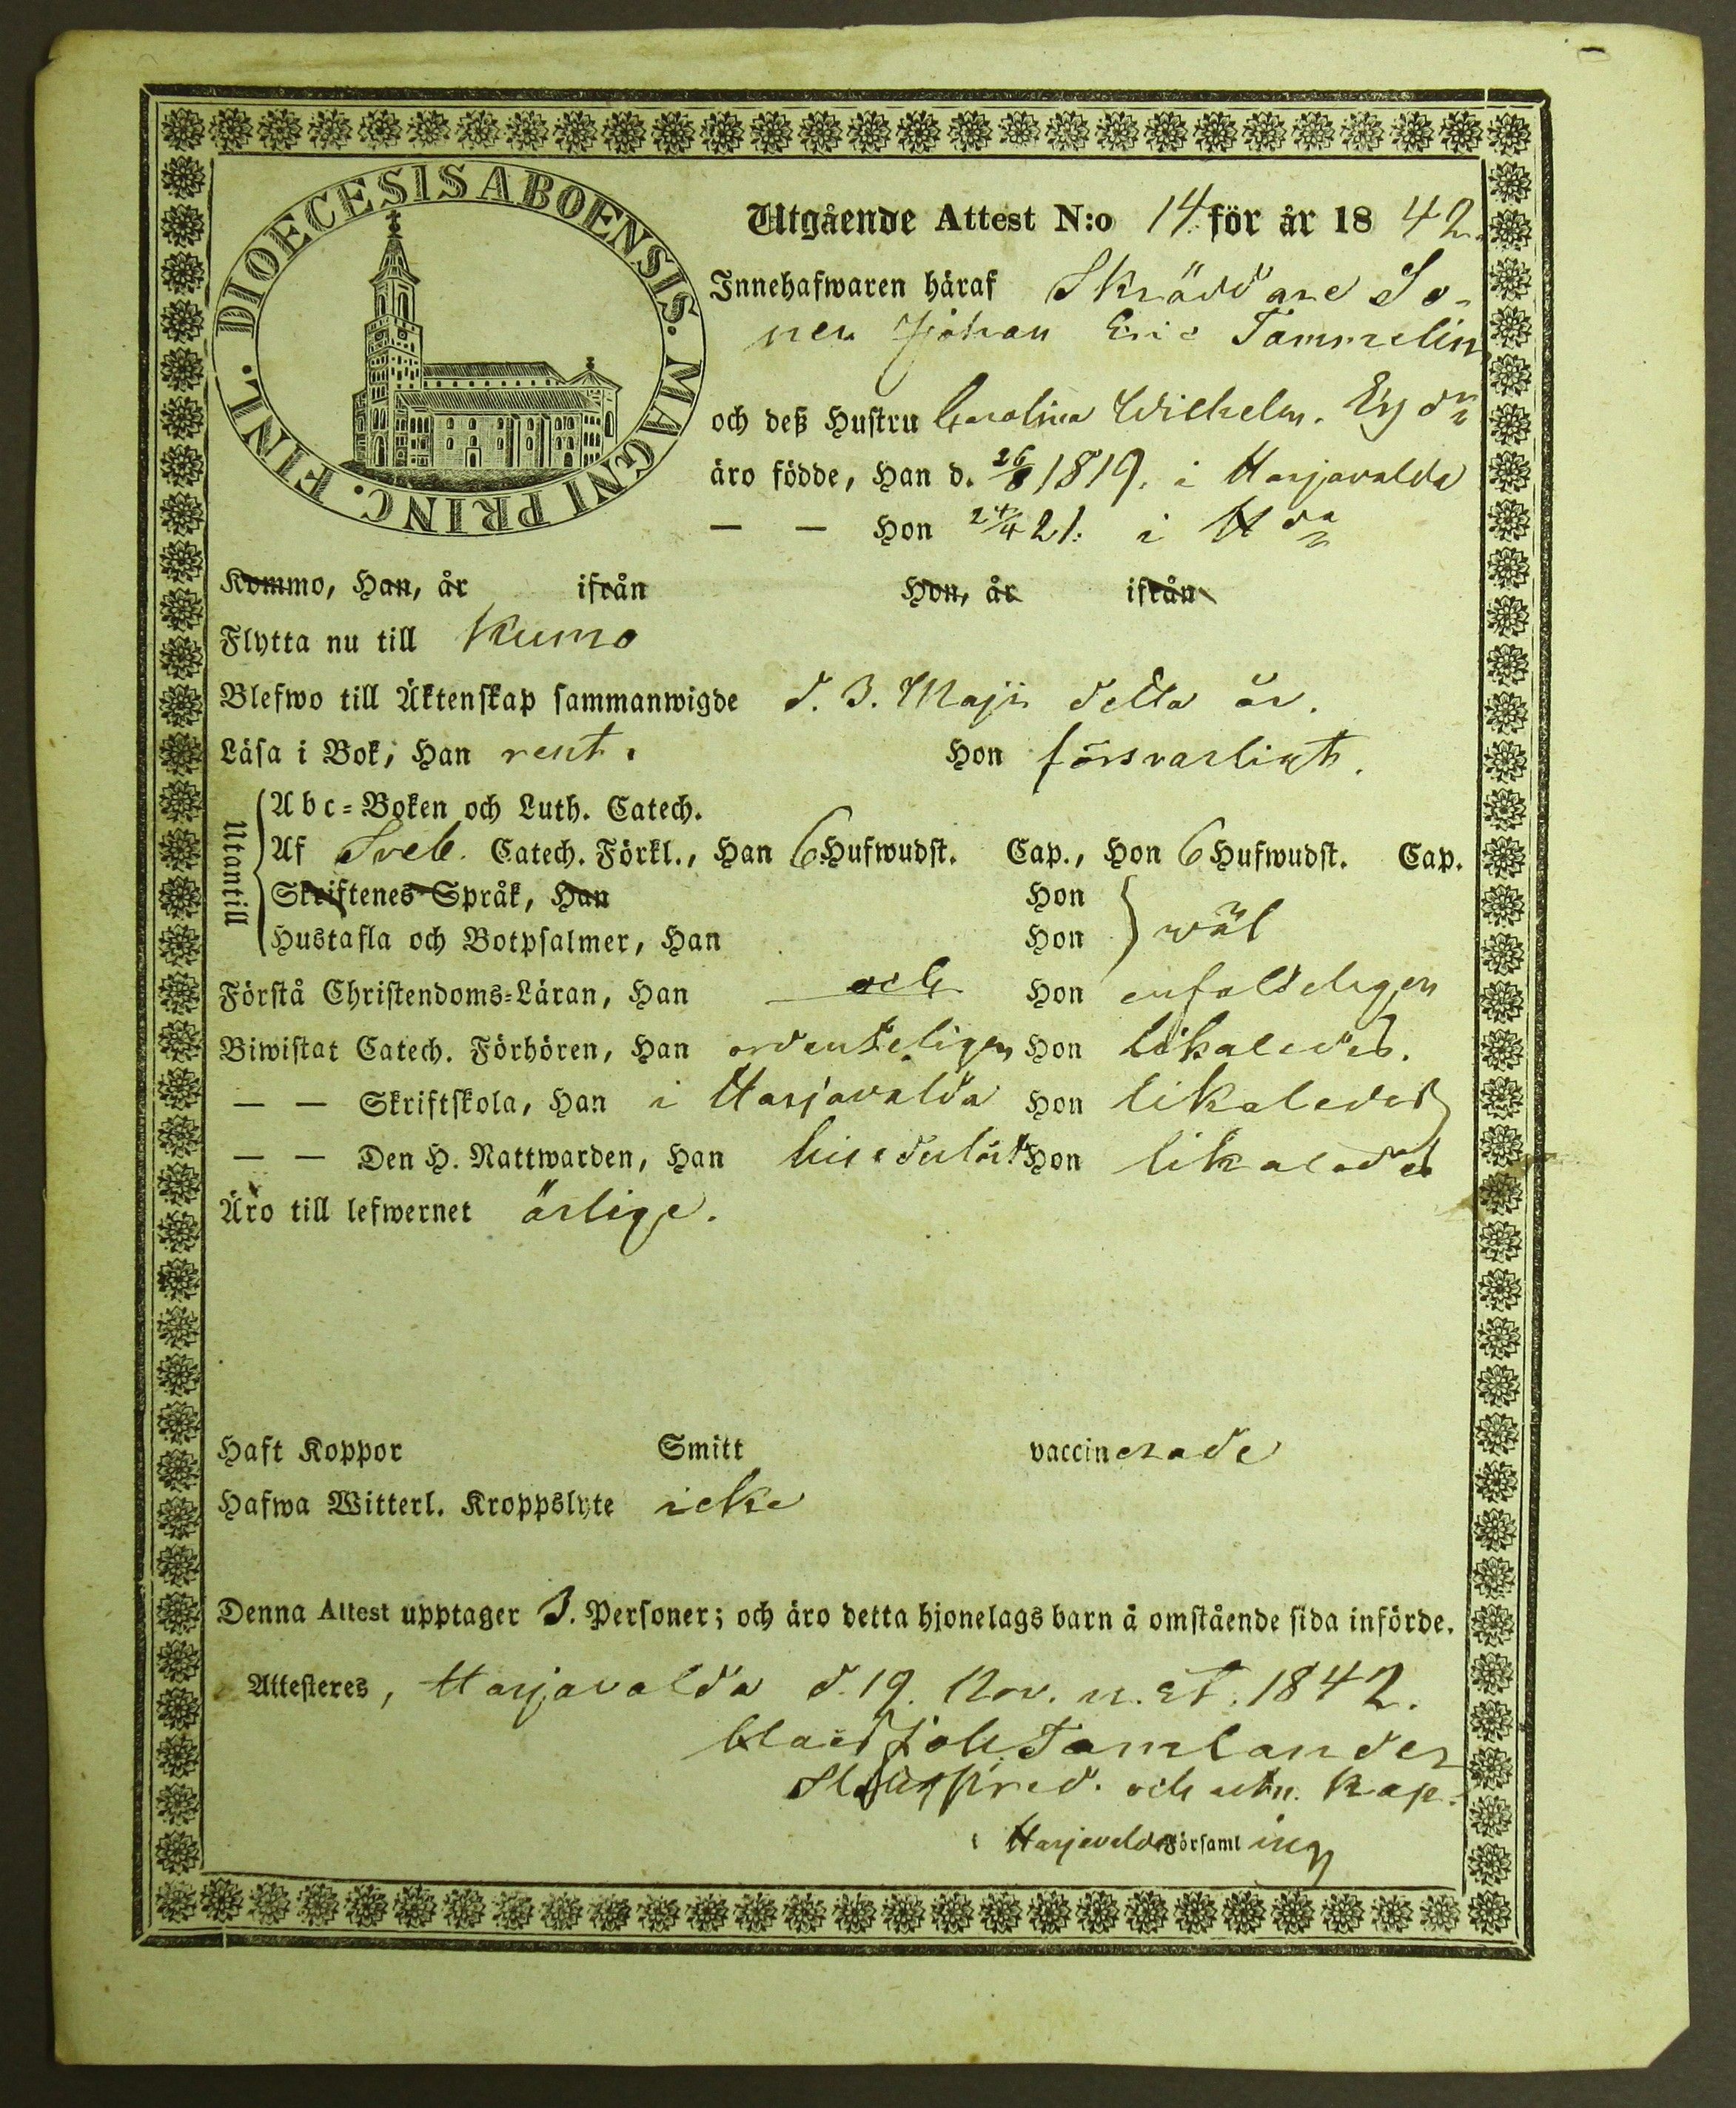 DIOECESIS ABOENSIS. MAGNI PRINC. FINL.
Utgående Attest N:o 14. för år 18 42.
Innehafwaren häraf Skräddare So-
nen Johan Eric Tammelin
och deß Hustru Carolina Wilhelm.
äro födde, Han d. 26/8 1819. i Harjavalda
— — Hon 24/4 21. i H da
Kommo, Han, år ifrån Hon, år ifrån
Flytta nu till Kumo
Blefwo till Äktenskap sammanwigde d. 3. Maji detta år.
Läsa i Bok, Han rent. Hon försvarligt.
Utantill
Abc-Boken och Luth. Catech.
Af Sveb. Catech. Förkl., Han 6 Hufwudst. Cap., Hon 6 Hufwudst. Cap.
Skriftenes Språk, Han Hon
Hustafla och Botpsalmer, Han Hon wäl
Förstå Christendoms-Läran, Han och Hon enfaldeligen
Biwistat Catech. Förhören, Han ordenteligen Hon likaledes.
— — Skriftskola, Han i Harjavalda Hon likaledes
— — Den H. Nattwarden, Han Hon likaledes
Äro till lefwernet ärlige.
Haft Koppor Smitt vaccinerade
Hafwa Witterl. Kroppslyte icke
Denna Attest upptager 3. Personer; och äro detta hjonelags barn å omstående sida införde.
Attesteres, Harjavalda d. 19. Nov. n. st. 1842.
Joh. Tamlander
och utn. Kap.
i Harjavalda Församl ing